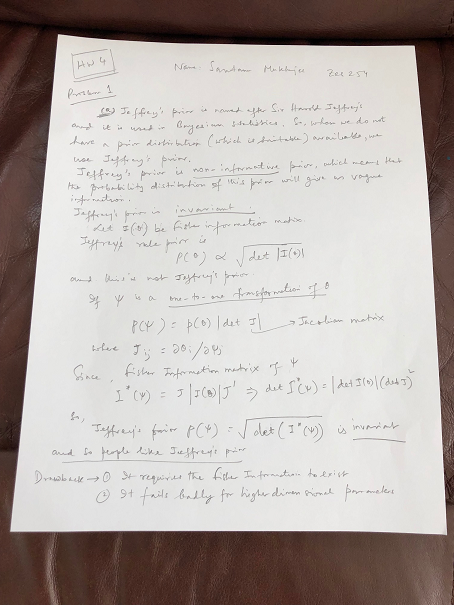 HW 4
Name: Mukherjee
Problem 1
(a) Jeffrey's prior is named after Sir Harold Jeffreys
and it is used in Bayesian statistics. So, when we do not
have a prior distribution (which is suitable) available, we
use Jeffrey's prior.
Jeffrey's prior is non-informative prior, which means that
the probability distribution of this prior will give us vague
information.
Jeffrey's prior is invariant.
Let I(θ) be fisher information matrix.
Jeffrey's rule prior is
P(θ) ∝ √det |I(θ)|
and this is not Jeffrey's prior.
If ψ is a one-to-one transformation of θ
P(ψ) = p(θ) |det J| → Jacobian matrix
where J_ij = ∂θ_i/∂ψ_j
Since, Fisher Information matrix of ψ
I*(ψ) = J |J(θ)| J' ⇒ det I*(ψ) = |det I(θ)| (det J)²
So,
Jeffrey's prior P(ψ) = √det(I*(ψ)) is invariant
and so people like Jeffrey's prior
Drawback → ① It requires the fisher Information to exist
② It fails badly for higher dimensional parameters